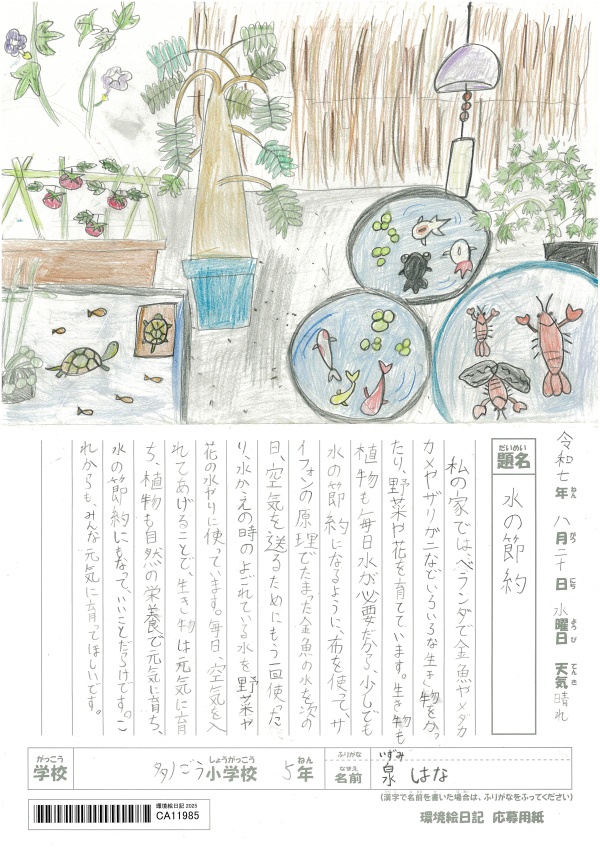 令和七年八月二十日水曜日 天気 晴れ
ねん がつ にち ようび てんき
だいめい
題名
水の節約
私の家では、ベランダで金魚やメダカ
カメやザリガニなどいろいろな生き物をかっ
たり、野菜や花を育てています。生き物も
植物も毎日水が必要だから、少しでも
水の節約になるように、布を使ってサ
イフォンの原理でたまった金魚の水を次の
日、空気を送るためにもう一回使った
り、水かえの時のよごれている水を野菜や
花の水やりに使っています。毎日、空気を入
れてあげることで、生き物は元気に育
ち、植物も自然の栄養で元気に育ち、
水の節約にもなって、いいことだらけです。こ
れからも、みんな元気に育ってほしいです。
がっこう
学校
しょうがっこう
ごう小学校
ねん
5年
ふりがな
いずみ
なまえ
名前
泉 はな
(漢字で名前を書いた場合は、ふりがなをふってください)
環境絵日記 2025
CA11985
環境絵日記 応募用紙